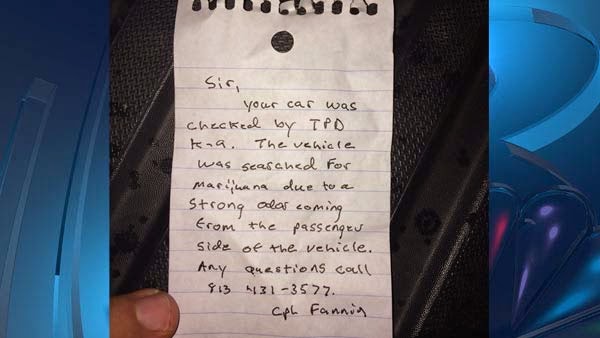 Sir,
your car was
checked by TPD
K-9. The vehicle
was searched for
marijuana due to a
strong odor coming
from the passenger
side of the vehicle.
Any questions call
813 431-3577.
Cpl Fannin